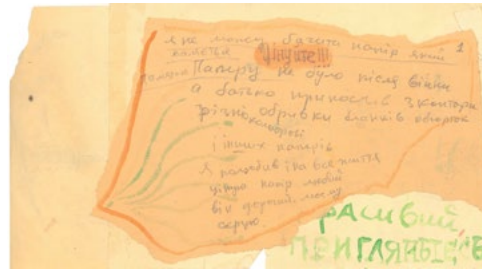 я не можу бачити папір який 1
Цінуйте!!!
Паперу не було після війни
а батько приносив з контори
різні обривки бланків обгорток
кольорові
і інших паперів
Я полюбив їх все життя
ціную папір любий
він дорогий моему
серцю
РАСИВИЙ,
ПРИГЛЯНЬТЕ